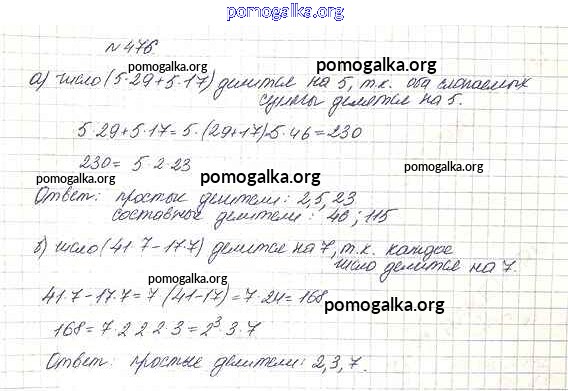 pomogalka.org
№476.
pomogalka.org
pomogalka.org
а) число (5·29+5·17) делится на 5, т.к. оба слагаемых
суммы делятся на 5.
5·29+5·17=5·(29+17)=5·46=230
pomogalka.org
230= 5·2·23
pomogalka.org
pomogalka.org
Ответ: простые делители: 2,5,23
составные делители: 46; 115
pomogalka.org
б) число (41·7-17·7) делится на 7, т.к. каждое
число делится на 7.
pomogalka.org
41·7-17·7=7(41-17)=7·24=168
pomogalka.org
168=7·2·2·2·3=2³·3·7
pomogalka.org
Ответ: простые делители: 2,3,7.